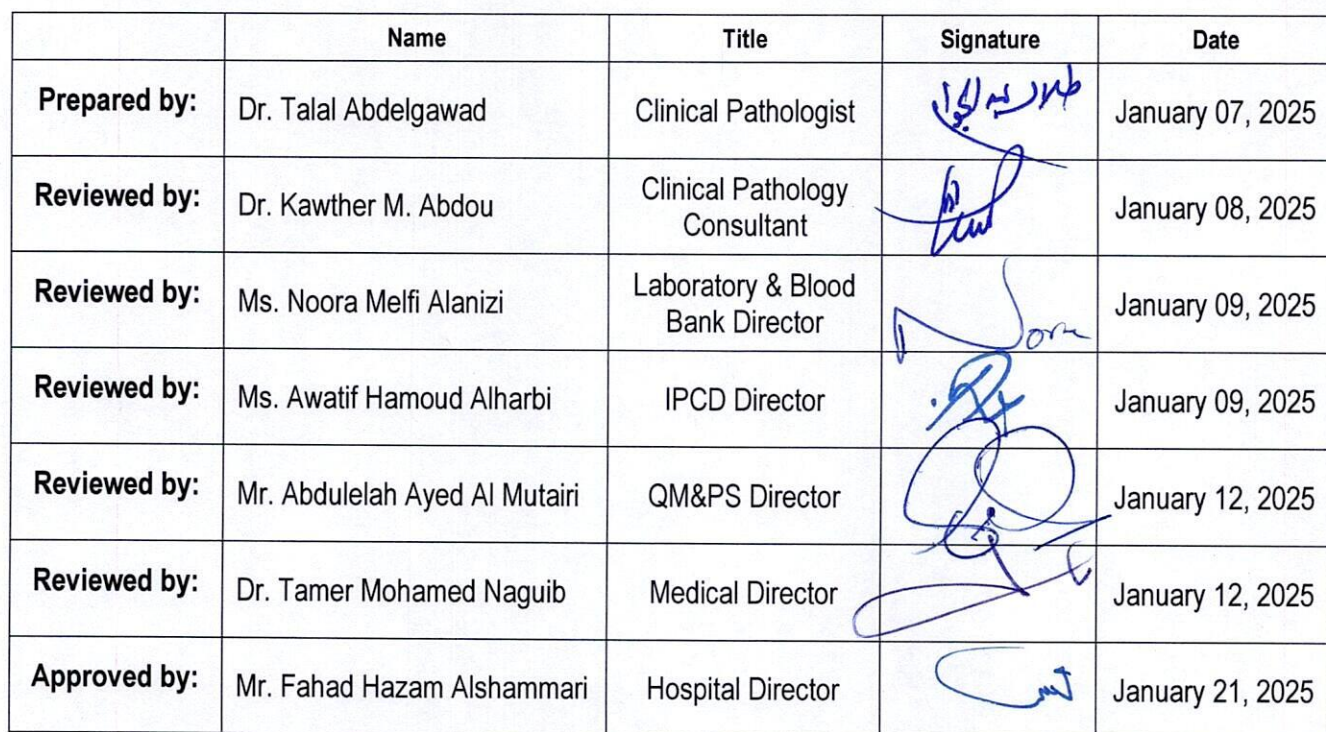 Name Title Signature Date
Prepared by: Dr. Talal Abdelgawad Clinical Pathologist طلال عبد الجواد January 07, 2025
Reviewed by: Dr. Kawther M. Abdou Clinical Pathology Consultant January 08, 2025
Reviewed by: Ms. Noora Melfi Alanizi Laboratory & Blood Bank Director Nora January 09, 2025
Reviewed by: Ms. Awatif Hamoud Alharbi IPCD Director January 09, 2025
Reviewed by: Mr. Abdulelah Ayed Al Mutairi QM&PS Director January 12, 2025
Reviewed by: Dr. Tamer Mohamed Naguib Medical Director January 12, 2025
Approved by: Mr. Fahad Hazam Alshammari Hospital Director January 21, 2025